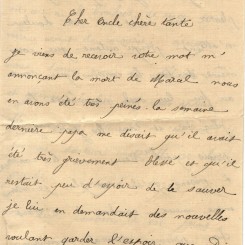 Cher oncle chère tante
je viens de recevoir votre mot m'
annonçant la mort de Moral nous
en avons été très peinés. la semaine
dernière papa me disait qu'il avait
été très grièvement blessé et qu'il
restait peu d'espoir de le sauver
je lui en demandait des nouvelles
voulant garder l'espoir